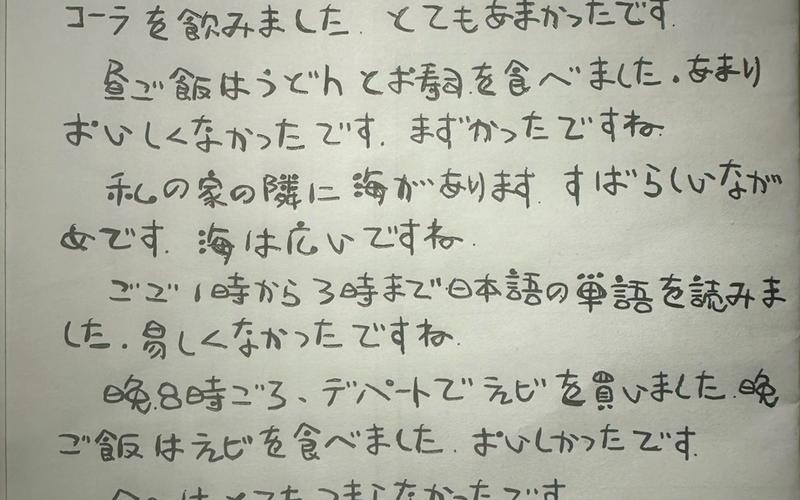 コーラを飲みました. とてもあまかったです.
昼ご飯はうどんとお寿司を食べました. あまり
おいしくなかったです. まずかったですね.
私の家の隣に海があります. すばらしいなが
めです. 海は広いですね.
ごご1時から3時まで日本語の単語を読みま
した. 易しくなかったですね.
晩8時ごろ、デパートでえビを買いました. 晩
ご飯はえビを食べました. おいしかったです.
はとてもつまらなかったです